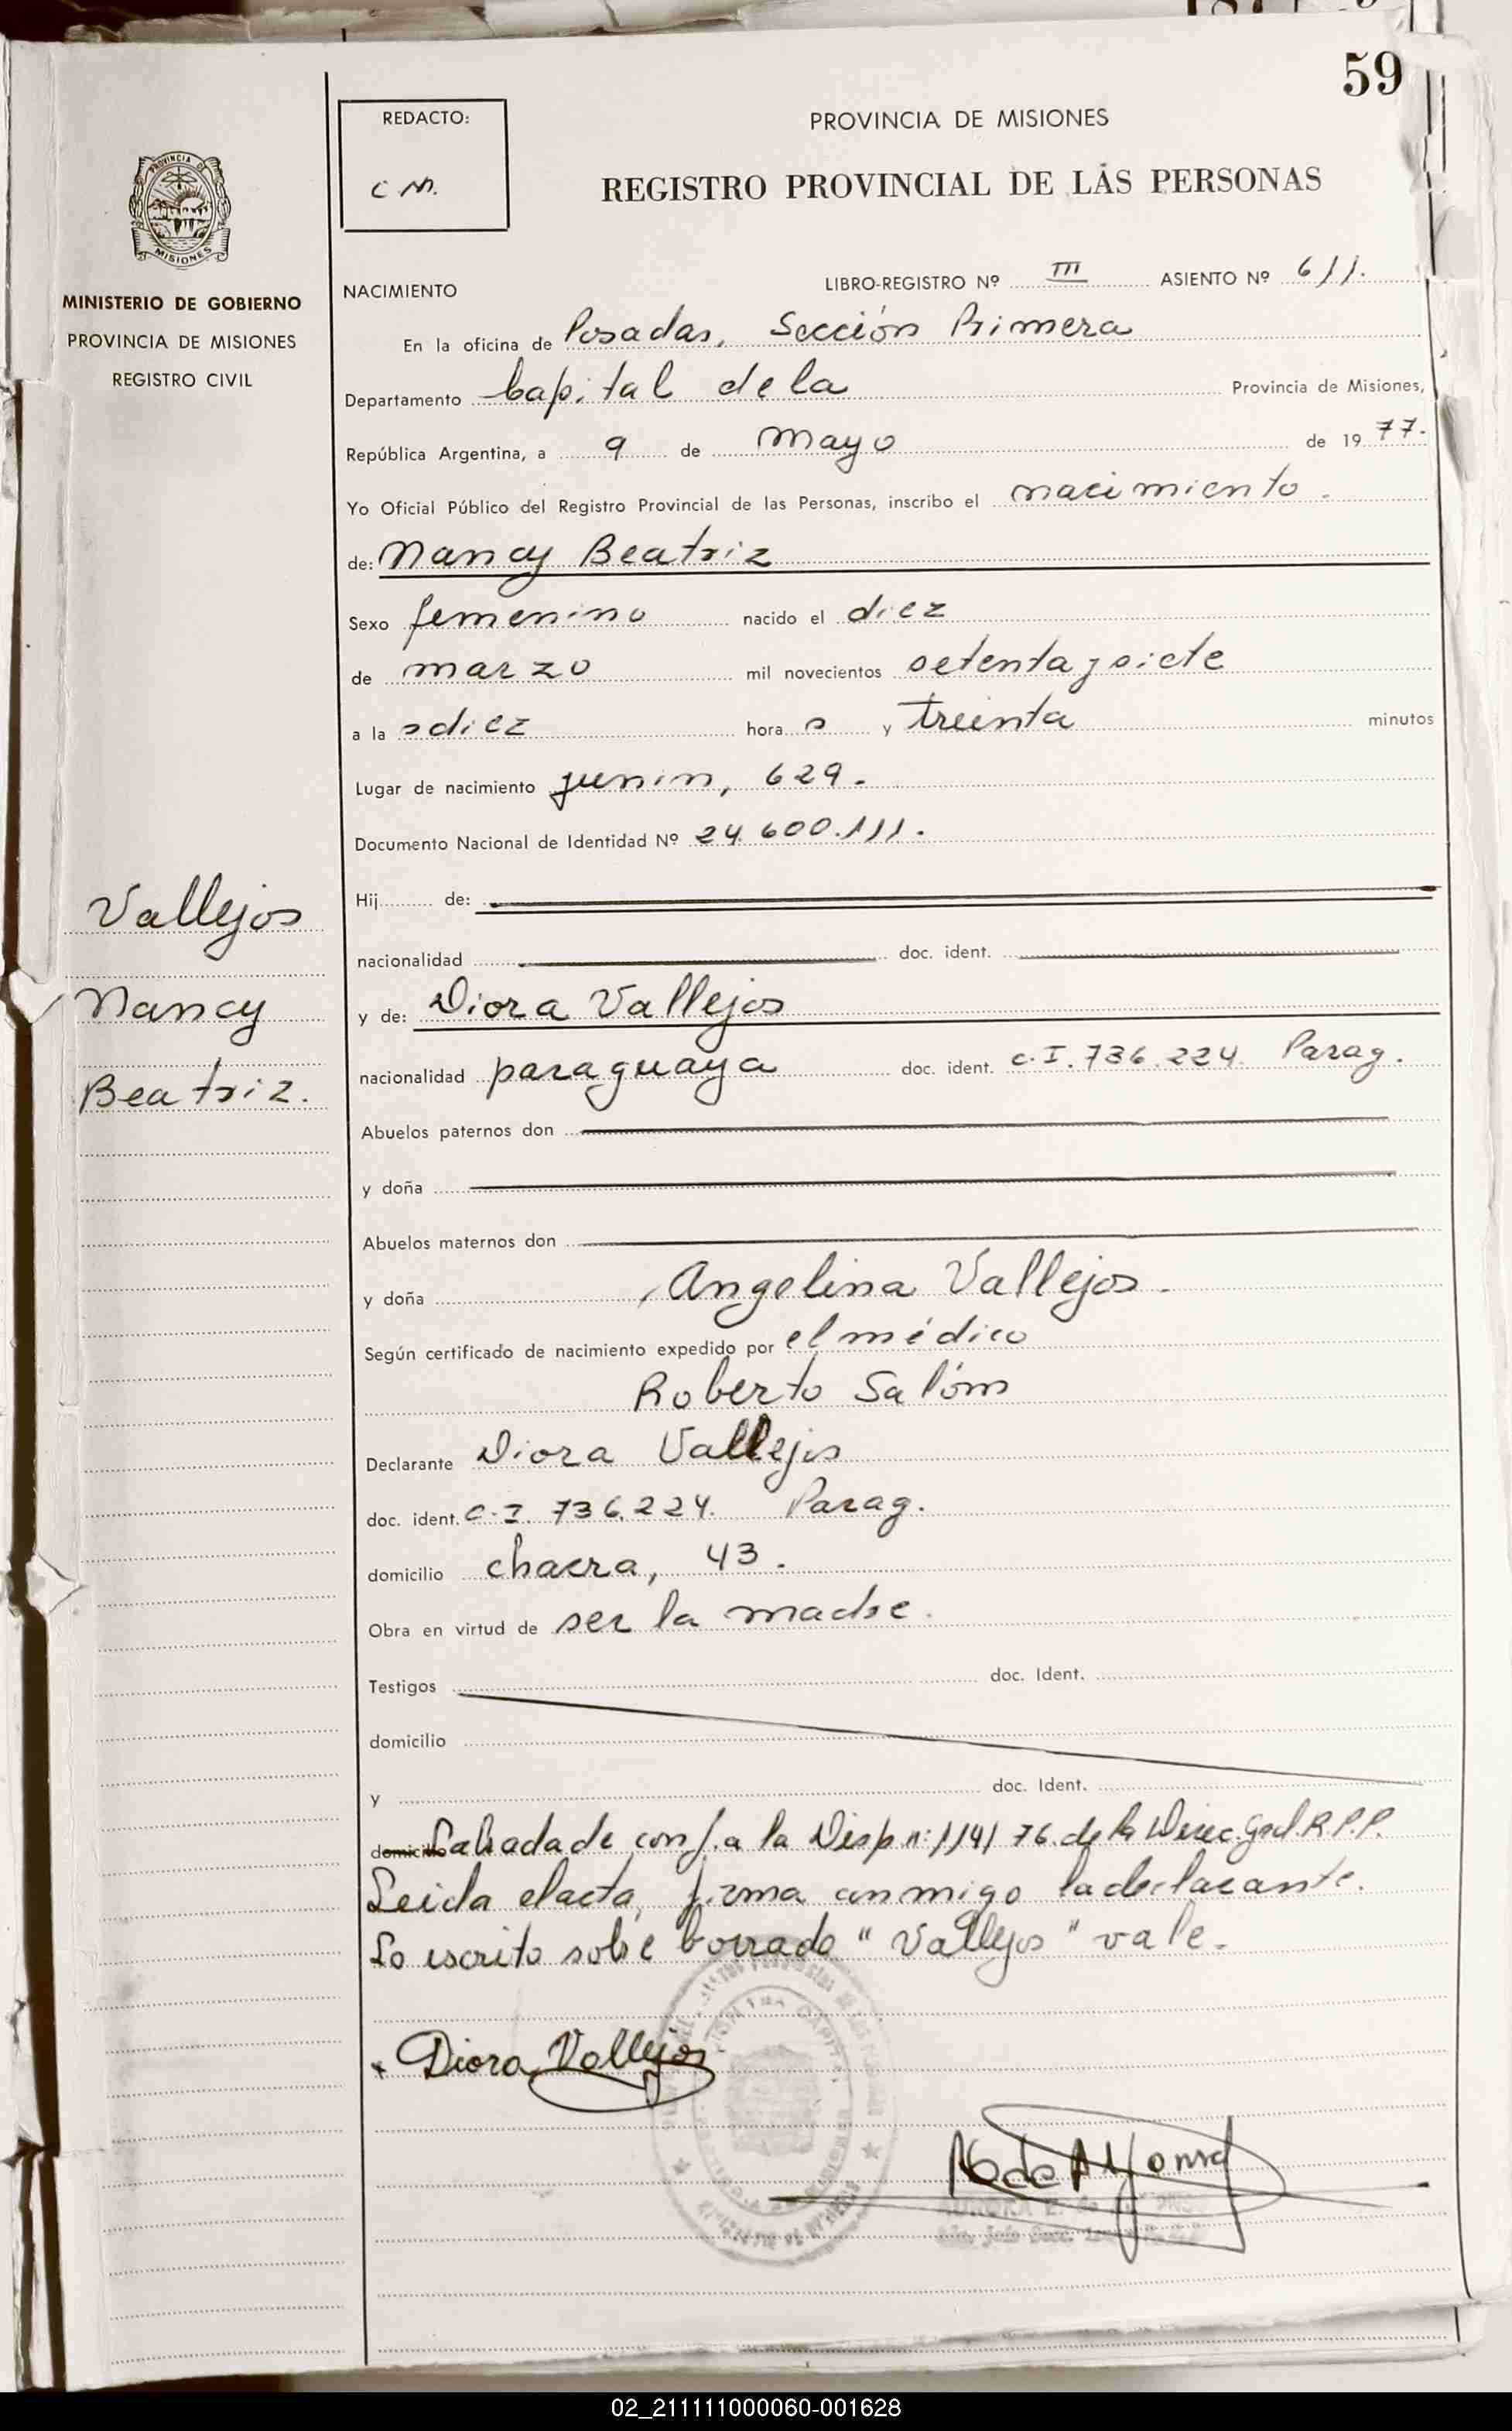 59
REDACTO:
C M.
PROVINCIA DE MISIONES
REGISTRO PROVINCIAL DE LAS PERSONAS
PROVINCIA DE
MISIONES
MINISTERIO DE GOBIERNO
PROVINCIA DE MISIONES
REGISTRO CIVIL
NACIMIENTO LIBRO-REGISTRO Nº III ASIENTO Nº 611.
En la oficina de Posadas, Sección Primera
Departamento Capital de la Provincia de Misiones,
República Argentina, a 9 de Mayo de 1977.
Yo Oficial Público del Registro Provincial de las Personas, inscribo el nacimiento.
de: Nancy Beatriz
Sexo femenino nacido el diez
de marzo mil novecientos setenta y siete
a la s diez hora s y treinta minutos
Lugar de nacimiento Junin, 629.
Documento Nacional de Identidad Nº 24.600.111.
Hij de:
nacionalidad doc. ident.
y de: Diora Vallejos
nacionalidad paraguaya doc. ident. C.I. 736.224. Parag.
Abuelos paternos don
y doña
Abuelos maternos don
y doña Angelina Vallejos.
Según certificado de nacimiento expedido por el médico
Roberto Salóm
Declarante Diora Vallejos
doc. ident. C.I. 736.224. Parag.
domicilio chacra, 43.
Obra en virtud de ser la madre.
Testigos doc. Ident.
domicilio
y doc. Ident.
domicilio Labrada de conf. a la Disp. nº 114/76 de la Direc. Gral. R.P.P.
Leida el acta, firma conmigo la declarante.
Lo escrito sobre borrado "Vallejos" vale.
Vallejos
Nancy
Beatriz.
Diora Vallejos
02_211111000060-001628